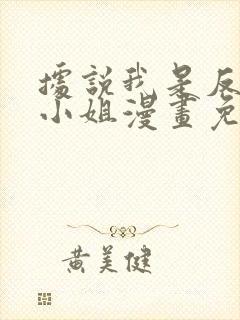 據說我是反
小姐漫畫免
黃美健